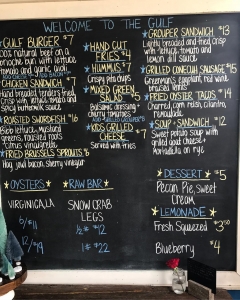 WELCOME TO THE GULF
GULF BURGER $7
100% natural beef on a
brioche bun with lettuce
tomato and garlic aioli
CHICKEN SANDWICH $7
Hand breaded, fried
Crisp with
tomato and
spicy buttermilk sauce
ROASTED SWORDFISH $16
Bibb lettuce, mustard
greens, roasted roots
Citrus vinaigrette
FRIED BRUSSELS SPROUTS $6
Hog jowl bacon, sherry vinegar
HAND CUT
FRIES $4
HUMMUS $7
Crispy pita chips
MIXED GREEN
SALAD
Balsamic dressing
cherry tomatoes
KIDS GRILLED
CHEESE $7
Served with fries
GROUPER SANDWICH $13
Lightly breaded and fried crisp
with lettuce, tomato and
lemon dill sauce
GRILLED CONECUH SAUSAGE $15
FRIED OYSTER TACOS $14
Charred corn, fresh cilantro,
remoulade
SOUP + SANDWICH $12
Sweet potato soup with
grilled goat cheese +
Mortadella on rye
OYSTERS
VIRGINICA,LA
6/$11
12/$19
RAW BAR
SNOW CRAB
LEGS
1/2# $12
1# $22
DESSERT $5
Pecan Pie, Sweet
Cream
LEMONADE
Fresh Squeezed $3.50
Blueberry $4